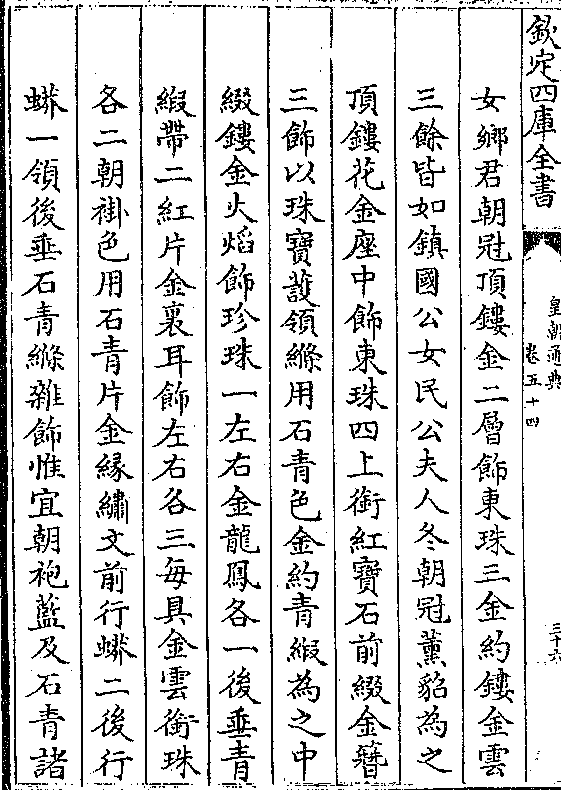 欽定四庫全書
皇朝通典
卷五十四
三十六
女鄉君朝冠頂鏤金二層飾東珠三金約鏤金雲
三餘皆如鎮國公女民公夫人冬朝冠薰貂為之
頂鏤花金座中飾東珠四上銜紅寶石前綴金簪
三飾以珠寶護領絛用石青色金約青緞為之中
綴鏤金火焰飾珍珠一左右金龍鳳各一後垂青
緞帶二紅片金裏耳飾左右各三每具金雲銜珠
各二朝褂色用石青片金緣繡文前行蟒二後行
蟒一領後垂石青絛雜飾惟宜朝袍藍及石青諸